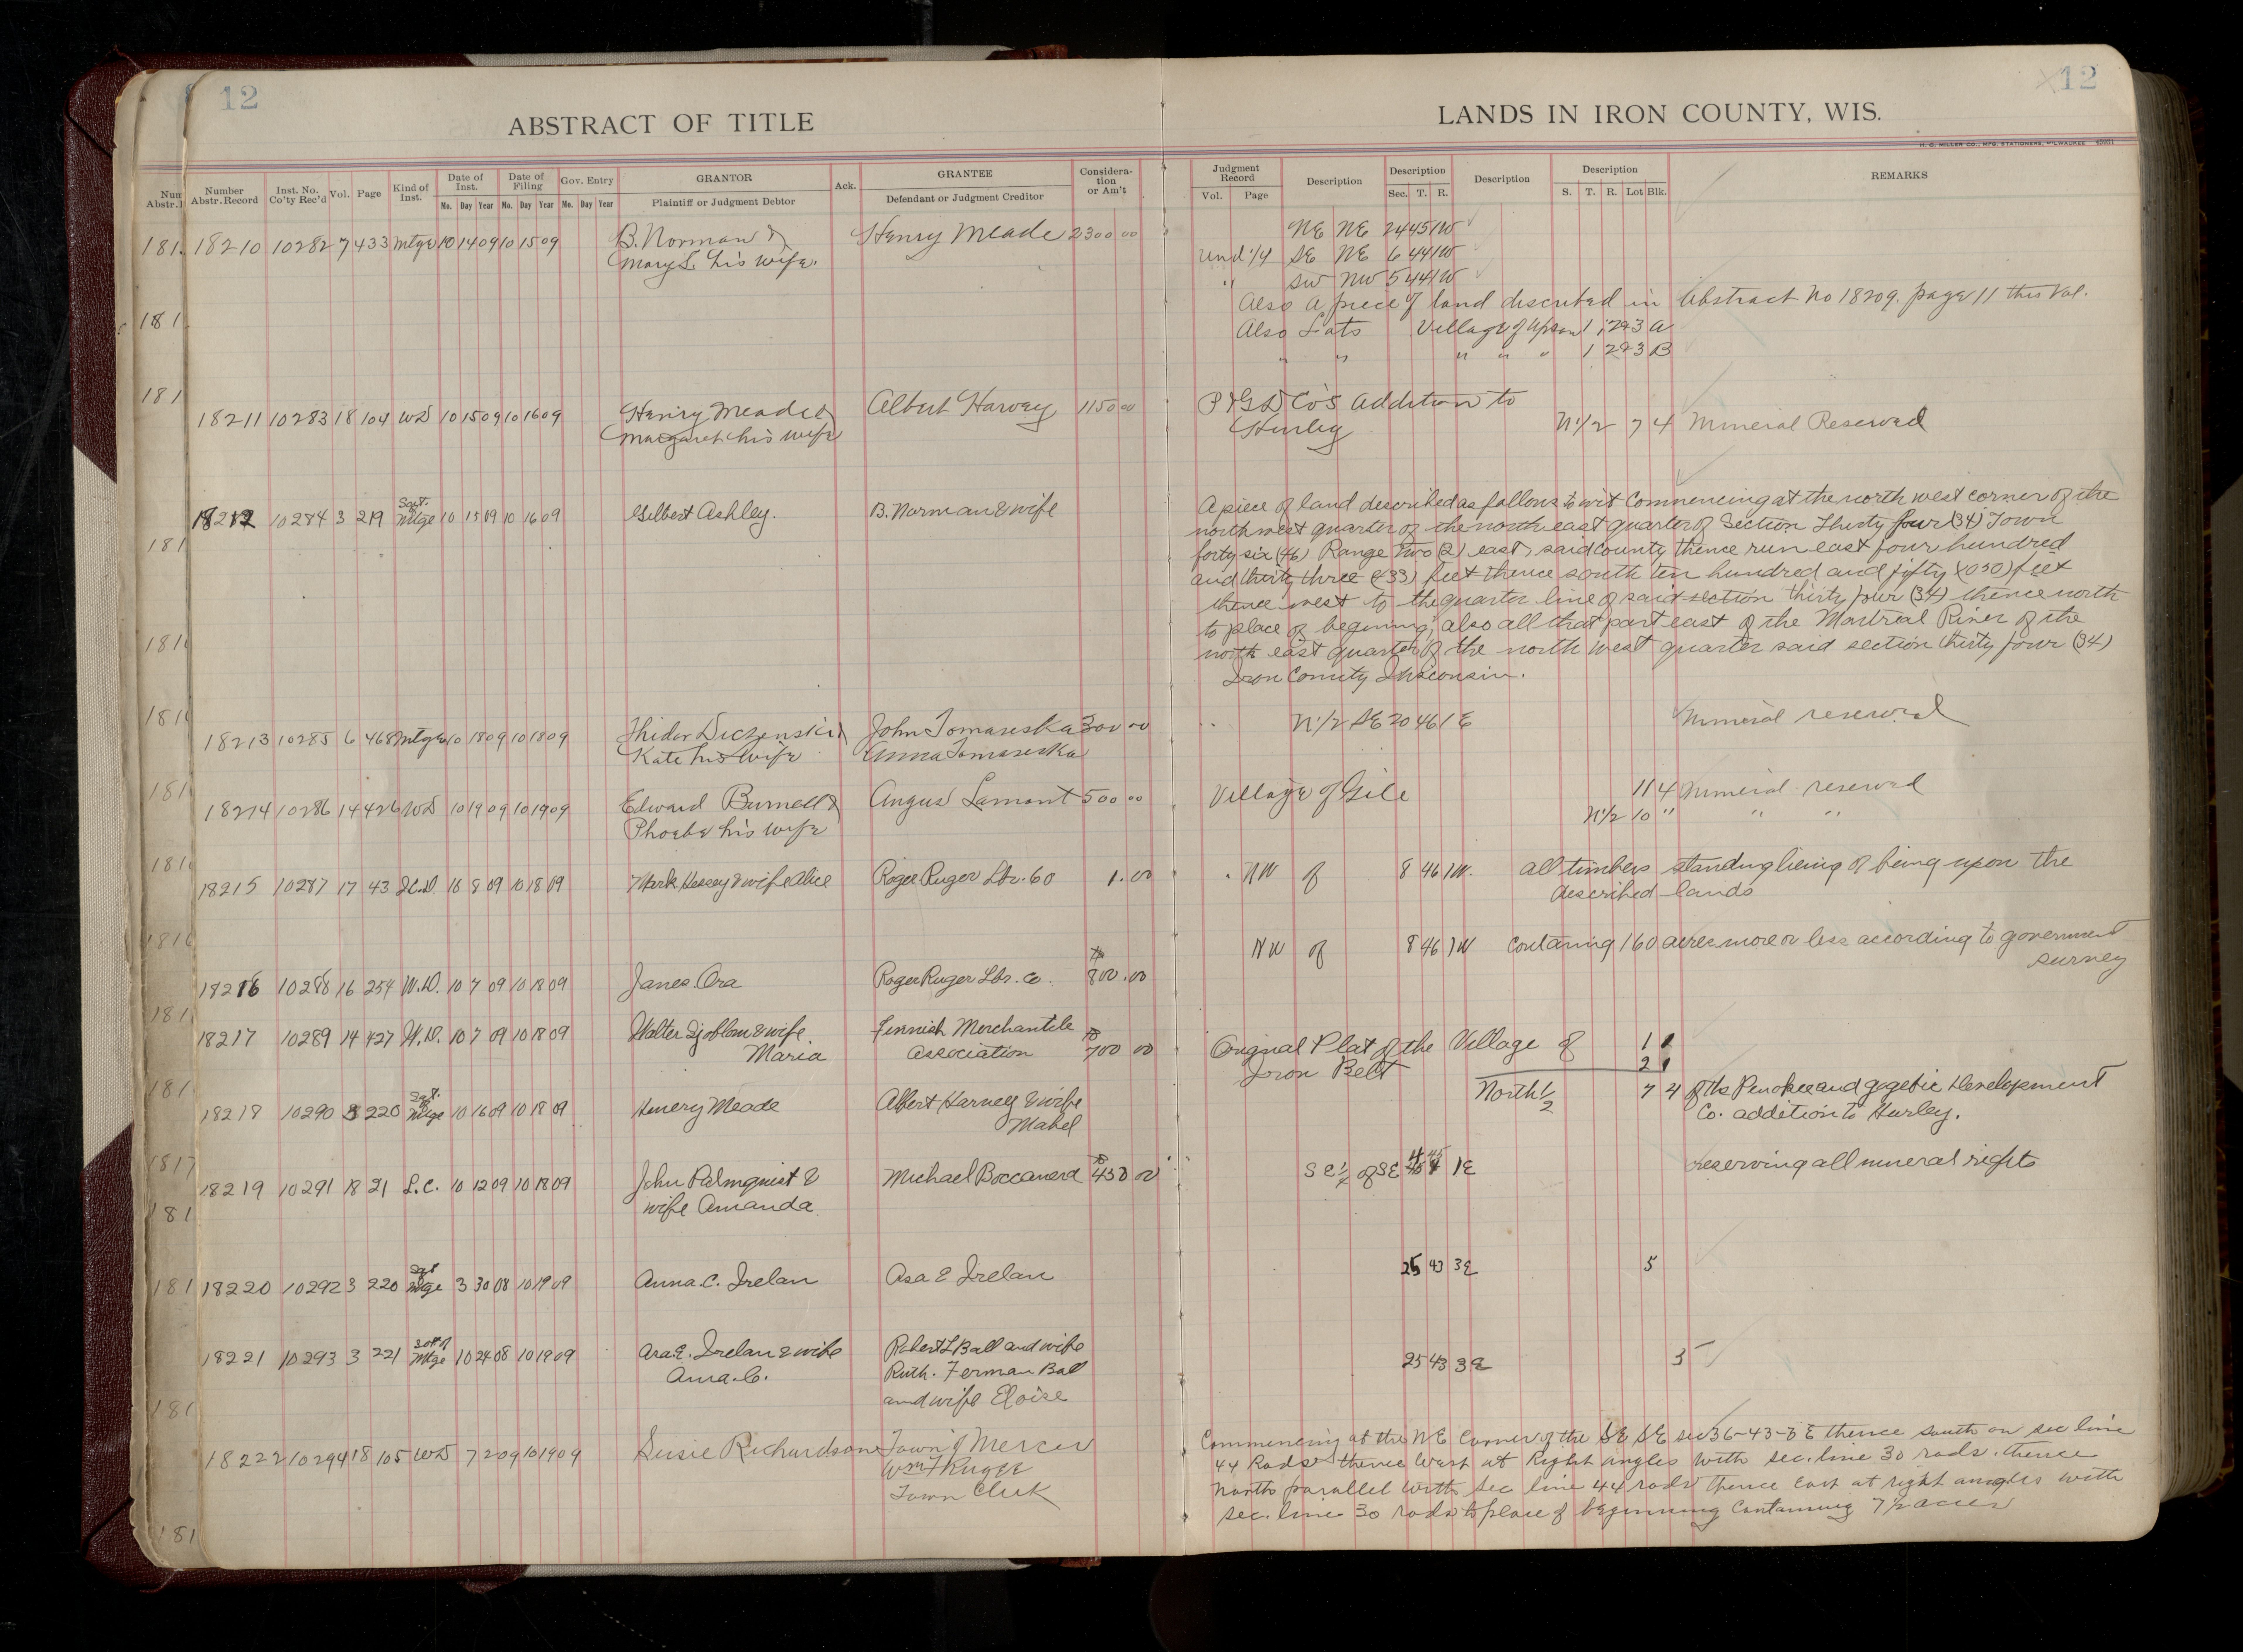 12
ABSTRACT OF TITLE
Num Abstr.
Number Abstr. Record
Inst. No. Co'ty Rec'd
Vol.
Page
Kind of Inst.
Date of Inst.
Mo. Day Year
Date of Filing
Mo. Day Year
Gov. Entry
Mo. Day Year
GRANTOR
Plaintiff or Judgment Debtor
Ack.
GRANTEE
Defendant or Judgment Creditor
Considera-
tion
or Am't
18210 10282 7 433 Mtge 10 14 09 10 15 09 B. Norman & Henry Meade 2300 00
Mary L. his wife.
18211 10283 18 104 WD 10 15 09 10 16 09 Henry Meade & Albert Harvey 1150 00
Margaret his wife
18212 10284 3 219 Sat. of Mtge 10 15 09 10 16 09 Gilbert Ashley. B. Norman & wife
18213 10285 6 468 Mtge 10 18 09 10 18 09 John Tomareska 300 00
Kate his wife Anna Tomareska
18214 10286 14 426 WD 10 19 09 10 19 09 Edward Burnell & Angus Lamont 500 00
Phoebe his wife
18215 10287 17 43 10 8 09 10 18 09 Mark Hessey & wife Alice Roger Ruger Lbr. Co 1.00
18216 10288 16 254 W.D. 10 7 09 10 18 09 James Ora Roger Ruger Lbr. Co. 800.00
18217 10289 14 427 W.D. 10 7 09 10 18 09 Walter Sjoblom & wife Finnish Merchantile
Maria Association 700 00
18218 10290 3 220 Sat. of Mtge 10 16 09 10 18 09 Henery Meade Albert Harvey & wife
Mabel
18219 10291 18 21 L.C. 10 12 09 10 18 09 John Palmquist & Michael 450 00
wife Amanda
18220 10292 3 220 Sat of Mtge 3 30 08 10 19 09 Anna. C. Irelan Asa E Irelan
18221 10293 3 221 Sat. of Mtge 10 24 08 10 19 09 Asa. E. Irelan & wife Robert L Ball and wife
Anna. C. Ruth. Ferman Ball
and wife Eloise
18222 10294 18 105 WD 7 2 09 10 19 09 Susie Richardson Town of Mercer
Wm F Ruger
Town Clerk
12
LANDS IN IRON COUNTY, WIS.
H. C. MILLER CO., MFG. STATIONERS, MILWAUKEE
Judgment Record
Vol. Page
Description
Description
Sec. T. R.
Description
Description
S. T. R. Lot Blk.
REMARKS
NE NE 24 45 1W
und 1/4 SE NE 6 44 1W
" SW NW 5 44 1W
Also a piece of land described in Abstract No 18209. page 11 this Vol.
Also Lots Village of Upson 1, 2 & 3 A
" " " " " 1 2 & 3 B
P & G D Co's Addition to
Hurley N 1/2 7 4 Mineral Reserved
A piece of land described as follows to wit Commencing at the north west corner of the
north west quarter of the north east quarter of Section Thirty four (34) Town
forty six (46) Range Two (2) east, said county thence run east four hundred
and thirty three (433) feet thence south ten hundred and fifty (1050) feet
thence west to the quarter line of said section thirty four (34) thence north
to place of begining; also all that part east of the Montreal River of the
north east quarter of the north west quarter said section thirty four (34)
Iron County Wisconsin.
N 1/2 SE 20 46 1 E Mineral reserved
Village of Gile 11 4 Mineral reserved
N 1/2 10 " " "
NW of 8 46 1W. all timbers standing lieing of being upon the
described lands
NW of 8 46 1W Contaning 160 acres more or less according to government
survey
Original Plat of the Village of 1 1
Iron Belt 2 1
North 1/2 7 4 of the Penokee and gogebic Development
Co. addition to Hurley.
S E 1/4 of SE 4 45 1E reserving all mineral rights
25 43 3E 5
25 43 3E 3
Commencing at the NE Corner of the SE SE sec 36-43-3 E thence south on sec line
44 Rods thence West at Right angles with sec. line 30 rods. thence
North parallel with sec line 44 rods thence East at right angles with
sec. line 30 rods to place of beginning Containing 7 1/2 acres